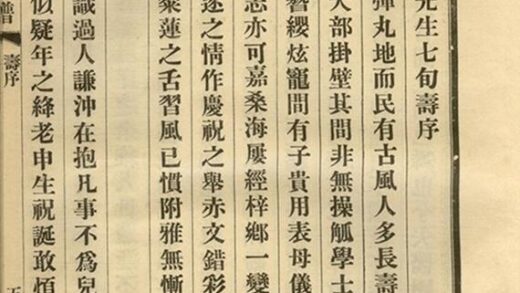 先生七旬壽序
彈丸地而民有古風人多長壽
人部掛壁其間非無操觚學士
簪纓炫寵間有子貴用表母儀
志亦可嘉桑海屢經梓鄉一變
逑之情作慶祝之舉赤文錯彩
粲蓮之舌習風已慣附雅無慚
識過人謙沖在抱凡事不為兒
似疑年之絳老申生祝誕敢煩
譜
壽序